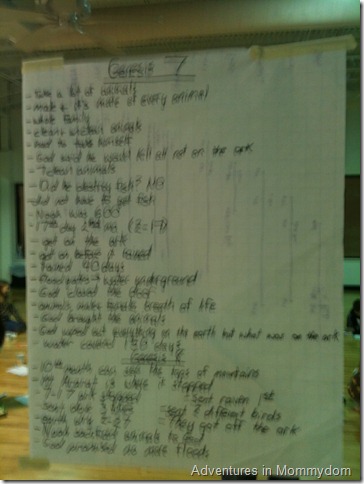 Genesis 7
- take a lot of animals
- male + it's mate of every animal
- whole family
- clean + unclean animals
- had to take
- God said he would kill all not on the ark
- 7 clean animals
- Did he destroy fish? NO
did not have to get fish
- Noah was 600
- 17th day 2nd mo. (2-17)
- got on the ark
- got on before it rained
- rained 40 days
- Flood water underground
- God closed the door
- animals, breath of life
- God brought the animals
- God wiped out everything on the earth but what was on the ark
- water covered 150 days
Genesis 8
- 10th month can see the tops of mountains
- it stopped
- 7-17 ark stopped = sent raven 1st
- sent dove 3 times = sent 2 different birds
- 2-27 = They got off the ark
- Noah sacrificed animals to God
- God promised no more floods
Adventures in Mommydom